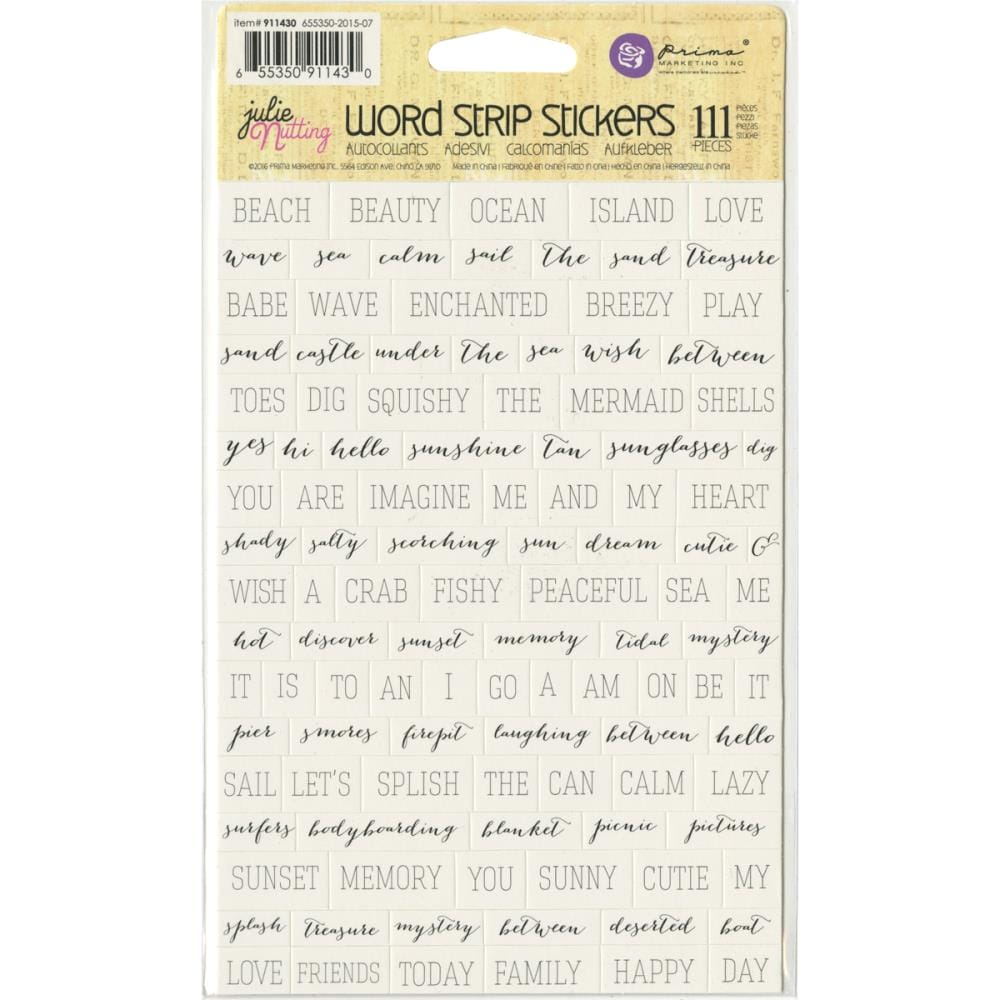 item# 911430 655350-2015-07
6 55350 91143 0
Prima®
MARKETING INC
julie Nutting
WORD STRIP STICKERS 111 PIECES
PIÈCES
PEZZI
PIEZAS
STÜCKE
AUTOCOLLANTS ADESIVI CALCOMANÍAS AUFKLEBER
©2016 PRIMA MARKETING INC. 5564 EDISON AVE. CHINO, CA 91710 MADE IN CHINA | FABRIQUÉ EN CHINE | FATTO IN CINA | HECHO EN CHINA | HERGESTELLT IN CHINA
BEACH BEAUTY OCEAN ISLAND LOVE
wave sea calm sail the sand treasure
BABE WAVE ENCHANTED BREEZY PLAY
sand castle under the sea wish between
TOES DIG SQUISHY THE MERMAID SHELLS
yes hi hello sunshine tan sunglasses dig
YOU ARE IMAGINE ME AND MY HEART
shady salty scorching sun dream cutie &
WISH A CRAB FISHY PEACEFUL SEA ME
hot discover sunset memory tidal mystery
IT IS TO AN I GO A AM ON BE IT
pier smores firepit laughing between hello
SAIL LET'S SPLISH THE CAN CALM LAZY
surfers bodyboarding blanket picnic pictures
SUNSET MEMORY YOU SUNNY CUTIE MY
splash treasure mystery between deserted boat
LOVE FRIENDS TODAY FAMILY HAPPY DAY